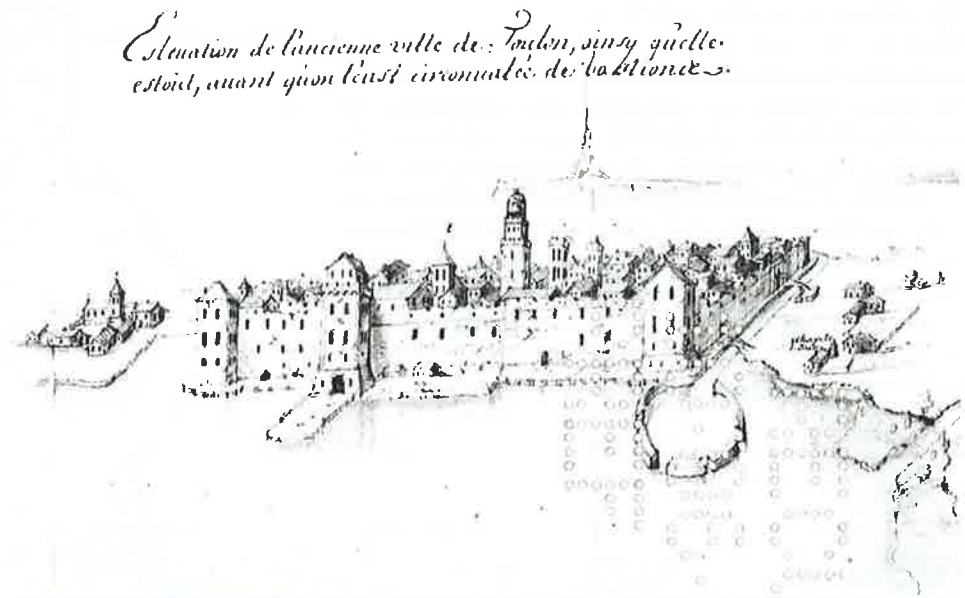 Esleuation de l'ancienne ville de Toulon, ainsy qu'elle
estoit, auant qu'on l'eust circonualée de bastions